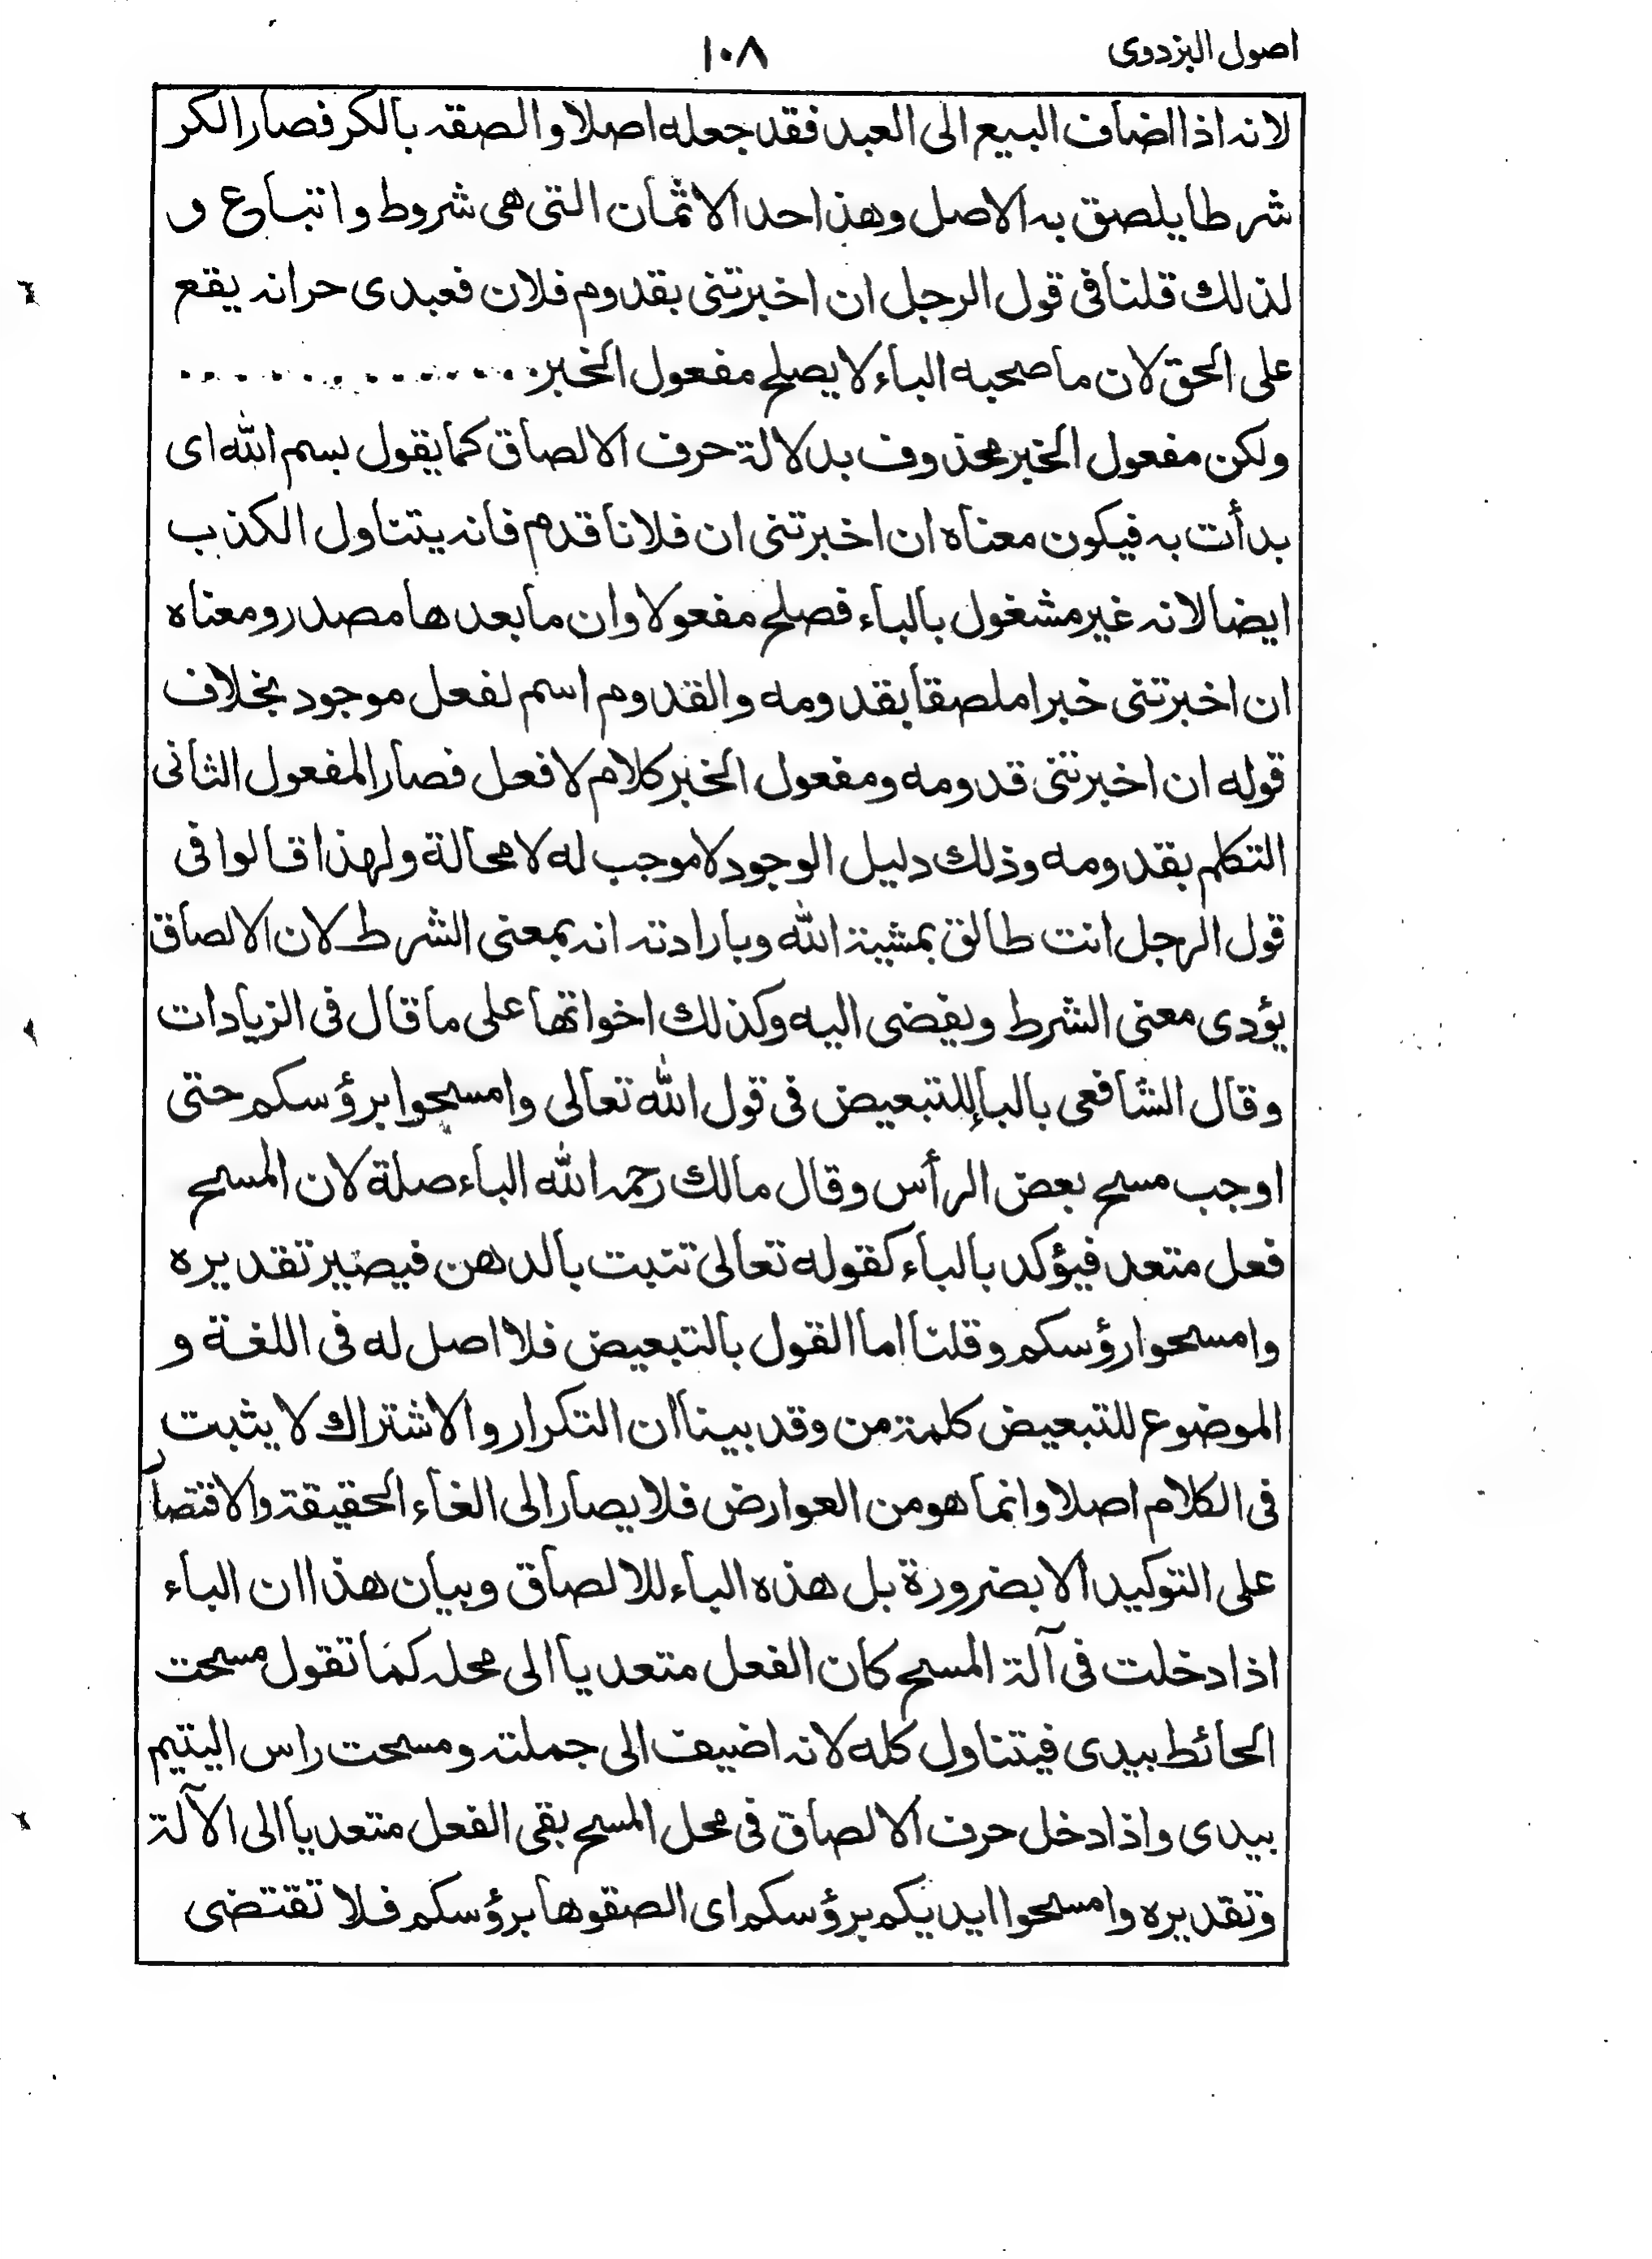 اصول البزدوى
١٠٨
لانه اذا اضاف البيع الى العبد فقد جعله اصلا والصقه بالكر فصار الكر
شرطا يلصق به الاصل وهذا حد الاثمان التى هى شروط واتباع و
لذلك قلنا فى قول الرجل ان اخبرتنى بقدوم فلان فعبدى حر انه يقع
على الحق لان ما صحبه الباء لا يصلح مفعول الخبر . . . . . . . . . . . . .
ولكن مفعول الخبر محذوف بدلالة حرف الالصاق كما يقول بسم الله اى
بدأت به فيكون معناه ان اخبرتنى ان فلانا قدم فانه يتناول الكذب
ايضا لانه غير مشغول بالباء فصلح مفعولا وان ما بعدها مصدر ومعناه
ان اخبرتنى خبرا ملصقا بقدومه والقدوم اسم لفعل موجود بخلاف
قوله ان اخبرتنى قدومه ومفعول الخبر كلام لا فعل فصار المفعول الثانى
التكلم بقدومه وذلك دليل الوجود لا موجب له لا محالة ولهذا قالوا فى
قول الرجل انت طالق بمشيئة الله وبارادته انه بمعنى الشرط لان الالصاق
يؤدى معنى الشرط ويفضى اليه وكذلك اخواتها على ما قال فى الزيادات
وقال الشافعى بالباء للتبعيض فى قول الله تعالى وامسحوا برؤسكم حتى
اوجب مسح بعض الرأس وقال مالك رحمه الله الباء صلة لان المسح
فعل متعد فيؤكد بالباء كقوله تعالى تنبت بالدهن فيصير تقديره
وامسحوا رؤسكم وقلنا اما القول بالتبعيض فلا اصل له فى اللغة و
الموضوع للتبعيض كلمة من وقد بينا ان التكرار والاشتراك لا يثبت
فى الكلام اصلا وانما هو من العوارض فلا يصار الى الغاء الحقيقة والاقتصار
على التوكيد الا بضرورة بل هذه الباء للالصاق وبيان هذا ان الباء
اذا دخلت فى آلة المسح كان الفعل متعديا الى محله كما تقول مسحت
الحائط بيدى فيتناول كله لانه اضيف الى جملته ومسحت راس اليتيم
بيدى واذا دخل حرف الالصاق فى محل المسح بقى الفعل متعديا الى الآلة
وتقديره وامسحوا ايديكم برؤسكم اى الصقوها برؤسكم فلا تقتضى